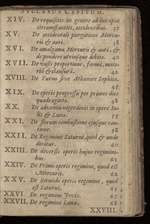 SYLLABVS CAPITVM.
XIV. De requisitis in genere ad hoc opus
circumstantiis, accidentibus. 37
XV. De accidentali purgatione Mercu-
rii & auri. 38
XVI. De amalgama Mercurii & auri, &
de pondere utriusque debito. 41
XVII. De vasis proportione, forma, mate-
ria & clausura. 42
XVIII. De Furno sive Athanore Sophico.
XIX. De operis progressu per primos dies
quadraginta.
XX. De adventu nigredinis in opere So-
lis & Luna.
XXI. De florum combustione ejusque cau-
XXII. De Regimine Saturni, quid &
dicatur.
XXIII. De diversis operis hujus regimini-
bus.
XXIV. De Primo operis regimine, quod est
Mercurii.
XXV. De secundo operis regimine, quod
est Saturni.
XXVI. De regimine Jovis.
XXVII. De regimine Luna.
XXVIII.